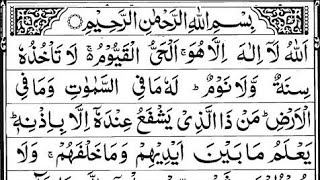 بِسْمِ اللهِ الرَّحْمٰنِ الرَّحِيْمِ
اَللهُ لَاۤ اِلٰهَ اِلَّا هُوَ ۚ اَلْحَیُّ الْقَیُّوْمُ ۚ لَا تَاْخُذُهٗ
سِنَةٌ وَّلَا نَوْمٌ ؕ لَهٗ مَا فِی السَّمٰوٰتِ وَمَا فِی
الْاَرْضِ ؕ مَنْ ذَا الَّذِیْ یَشْفَعُ عِنْدَهٗۤ اِلَّا بِاِذْنِهٖ ؕ
یَعْلَمُ مَا بَیْنَ اَیْدِیْهِمْ وَمَا خَلْفَهُمْ ۚ وَلَا